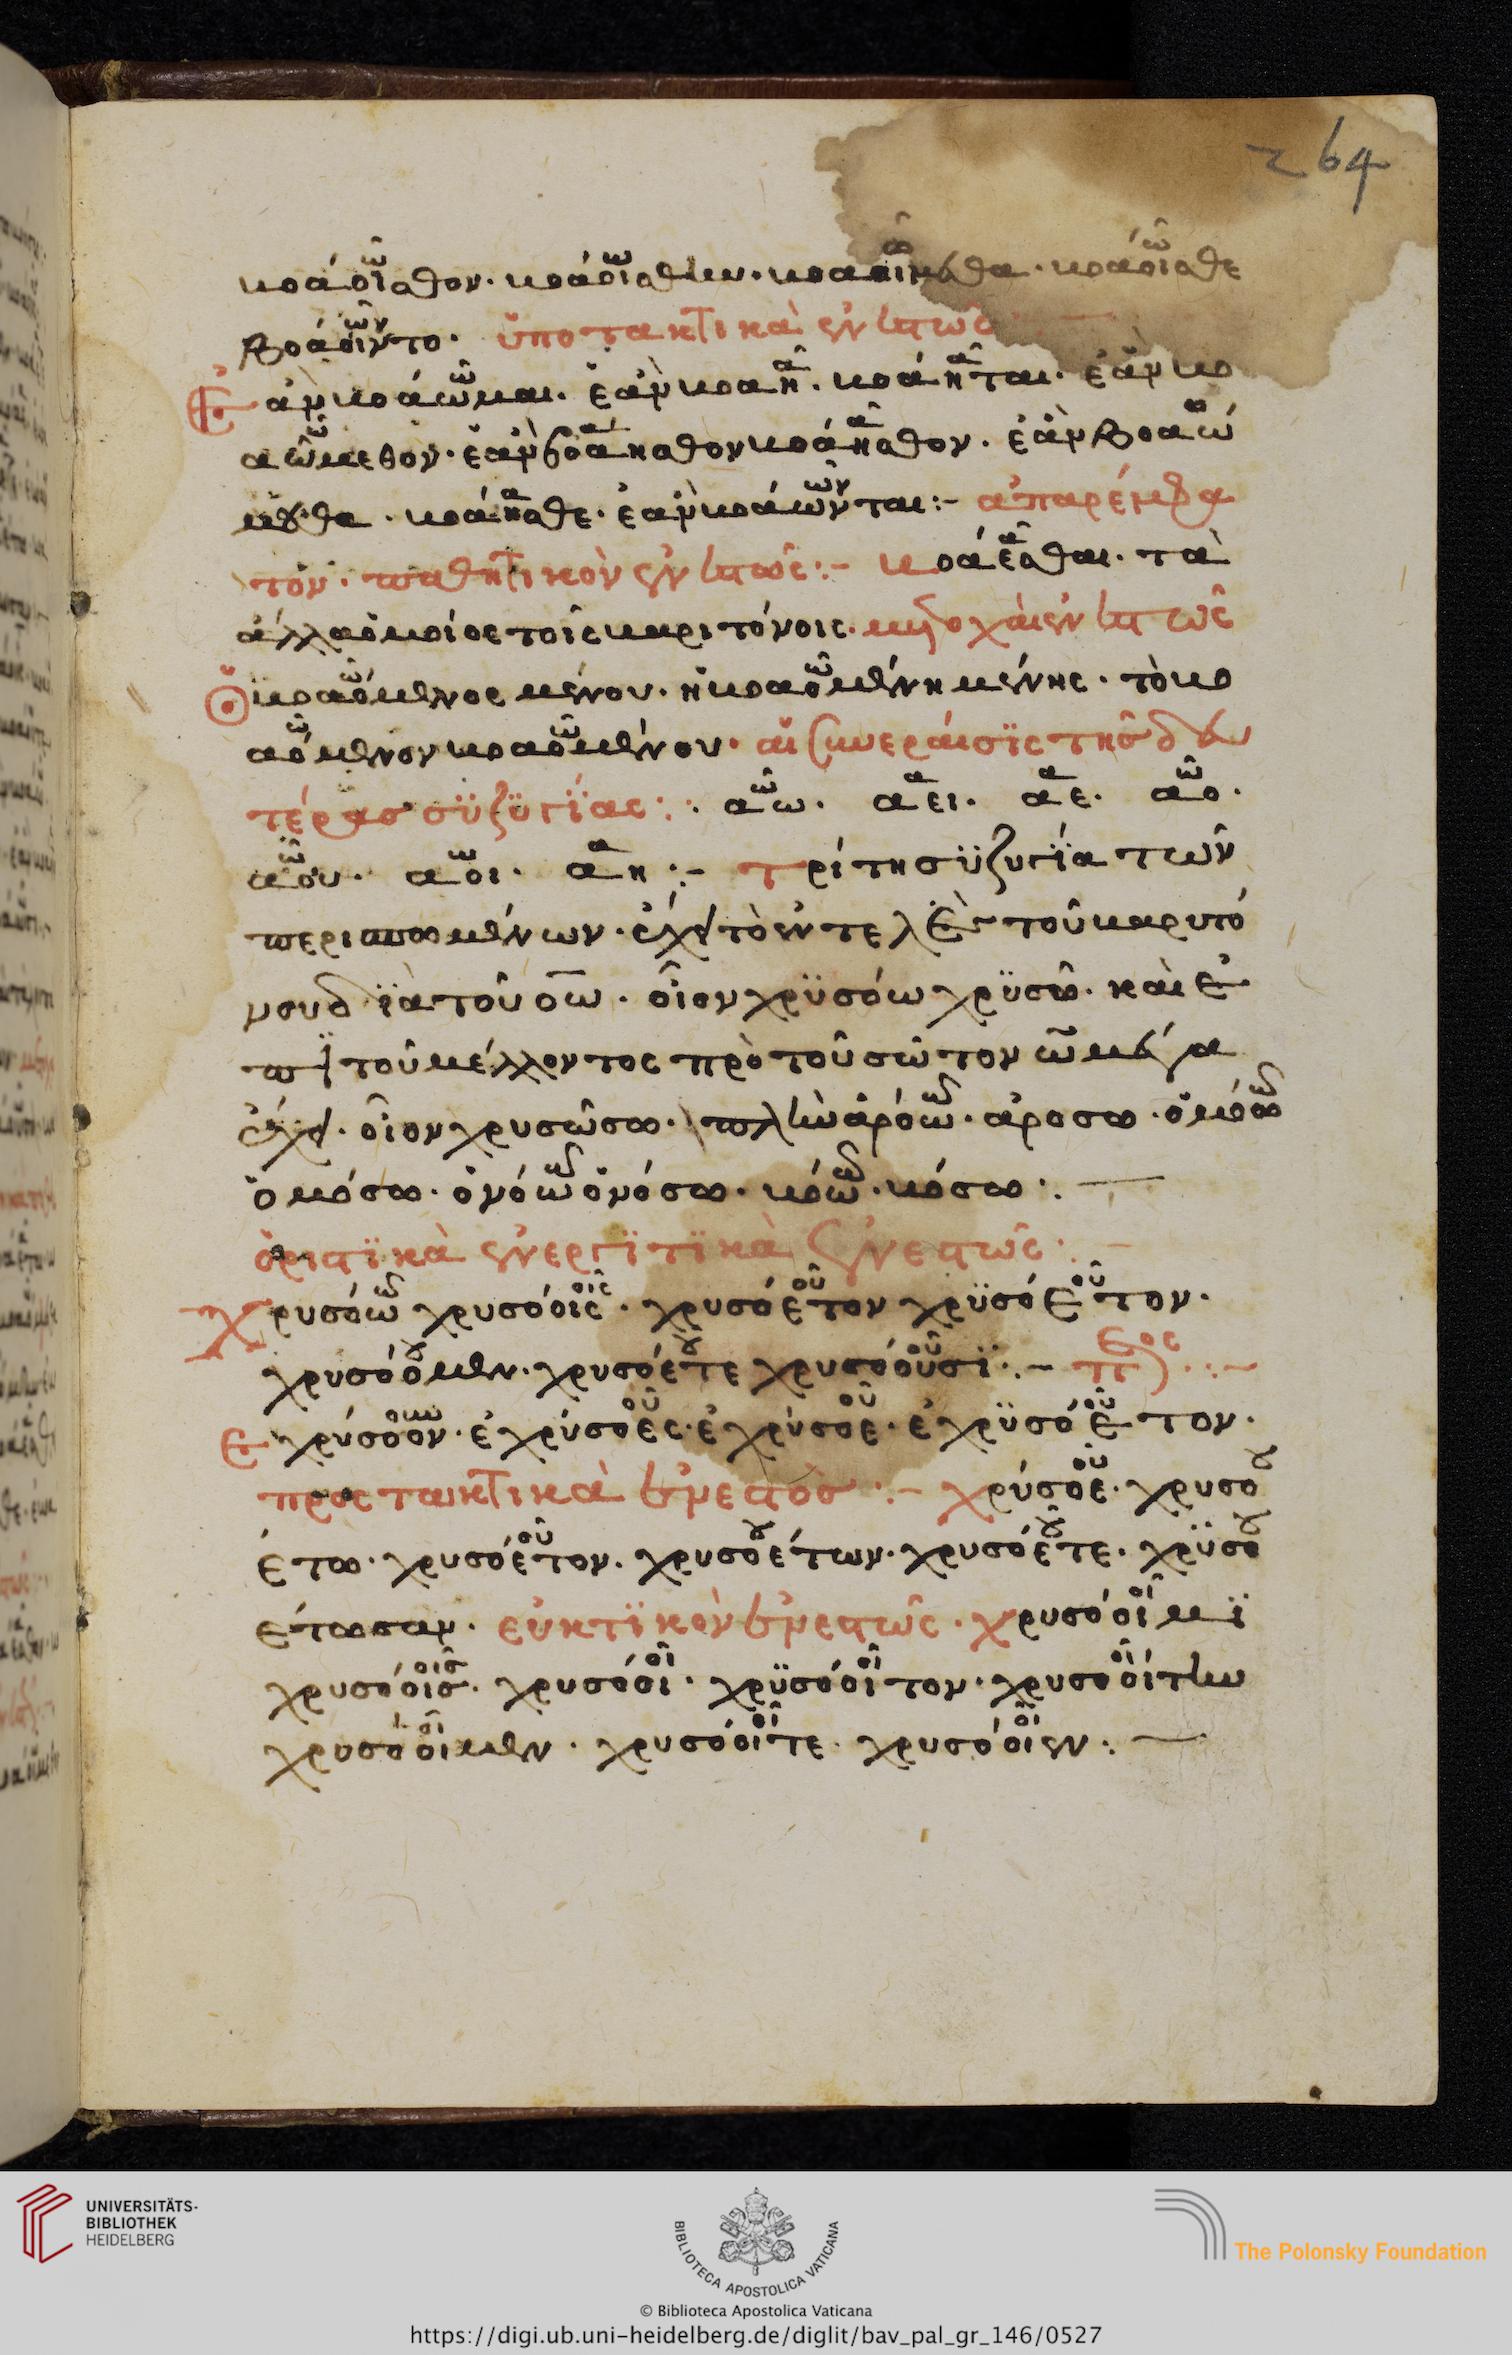 264
βοάοῖσθον. βοάοίσθην. βοαοίμεθα. βοάοῖσθε
βοάοῖντο. ὑποτακτικὰ ἐνεστῶς
Ἐὰν βοάωμαι. ἐὰν βοάη. βοάηται. ἐὰν βο
αώμεθον. ἐὰν βοάησθον βοάησθον. ἐὰν βοαώ
μεθα. βοάησθε. ἐὰν βοάωνται:- ἀπαρέμφα
τον. παθητικὸν ἐνεστῶς:- βοάεσθαι. τὰ
ἄλλα ὁμοίως τοῖς βαριτόνοις. μετοχαὶ ἐνεστῶς
Ὁ βοαόμενος μένου. ἡ βοαομένη μένης. τὸ βο
αόμενον βοαομένου. αἱ κιρνράισϊς τῆς δευ
τέρας συζυγΐας:. αω. αει. αε. αο.
αου. αοι. αη:- τρίτη συζυγΐα τῶν
περισπωμένων. ἔχει τὸ ἐντελὲς τοῦ βαρυτό
νου δϊὰ τοῦ οω. οἷον χρϋσόω χρϋσῶ. καὶ ἐ
πὶ τοῦ μέλλοντος πρὸ τοῦ σω τὸν ω μέγα
ἔχει. οἷον χρυσώσω. πλὴν ἀρόω. ἀροσω. ὀμόω
ὀμόσω. ὀνόω ὀνόσω. βόω. βόσω:.
ὁριστϊκὰ ἐνεργϊτϊκὰ ἐνεστῶς:.
χρυσόω χρυσόοις. χρυσόετον χρϋσόετον.
χρυσόομεν. χρυσόετε χρυσόουσϊ:.
ἐχρύσοον. ἐχρύσοες. ἐχρύσοε. ἐχρϋσόετον.
προστακτικὰ ἐνεστὸς:- χρύσοε. χρυσο
έτω. χρυσόετον. χρυσοέτων. χρυσόετε. χρϋσο
έτωσαν. εὐκτϊκὸν ἐνεστῶς. χρυσόοιμϊ
χρυσόοις. χρυσόοι. χρϋσόοιτον. χρυσοοίτην
χρυσόοιμεν. χρυσόοιτε. χρυσόοιεν:.
UNIVERSITÄTS-
BIBLIOTHEK
HEIDELBERG
BIBLIOTECA APOSTOLICA VATICANA
The Polonsky Foundation
© Biblioteca Apostolica Vaticana
https://digi.ub.uni-heidelberg.de/diglit/bav_pal_gr_146/0527